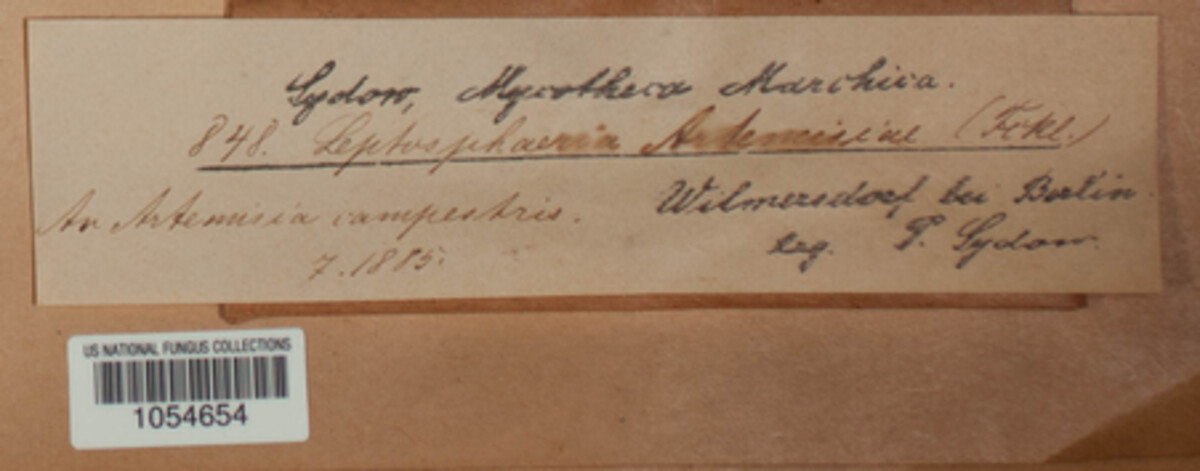 Sydow, Mycotheca Marchica.
848. Leptosphaeria Artemisiae (Fckl.)
An Artemisia campestris.
7. 1885.
Wilmersdorf bei Berlin.
leg. P. Sydow.
US NATIONAL FUNGUS COLLECTIONS
1054654